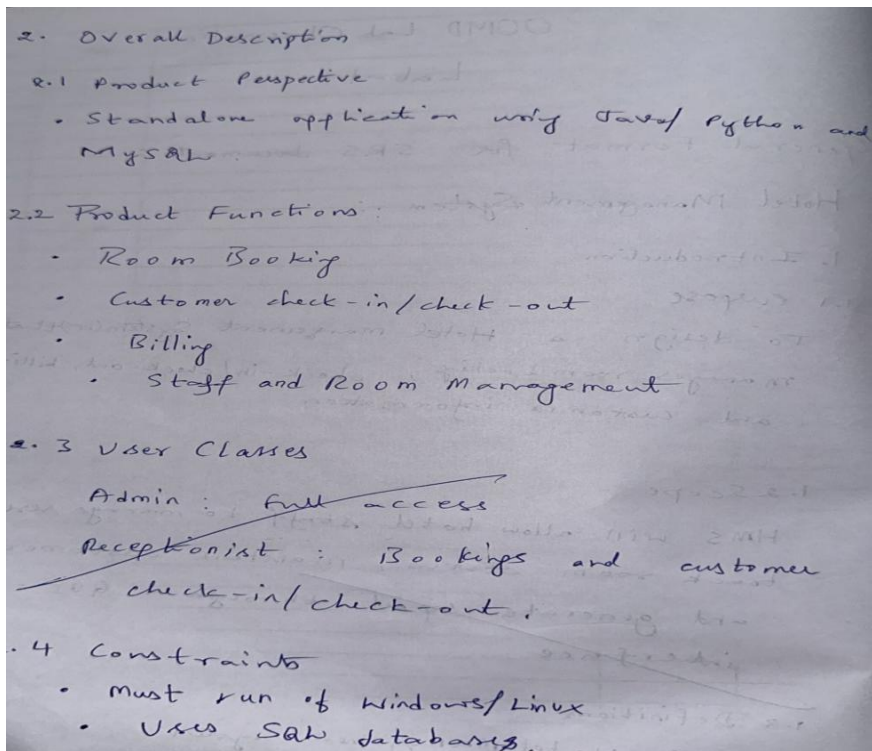 2. Overall Description
2.1 Product Perspective
• Standalone application using Java/ Python and
MySQL.
2.2 Product Functions:
• Room Booking
• Customer check-in/check-out
• Billing
• Staff and Room Management
2.3 User Classes
Admin : full access
Receptionist : Bookings and customer
check-in/check-out.
.4 Constraints
• Must run of Windows/Linux
• Uses SQL databases.